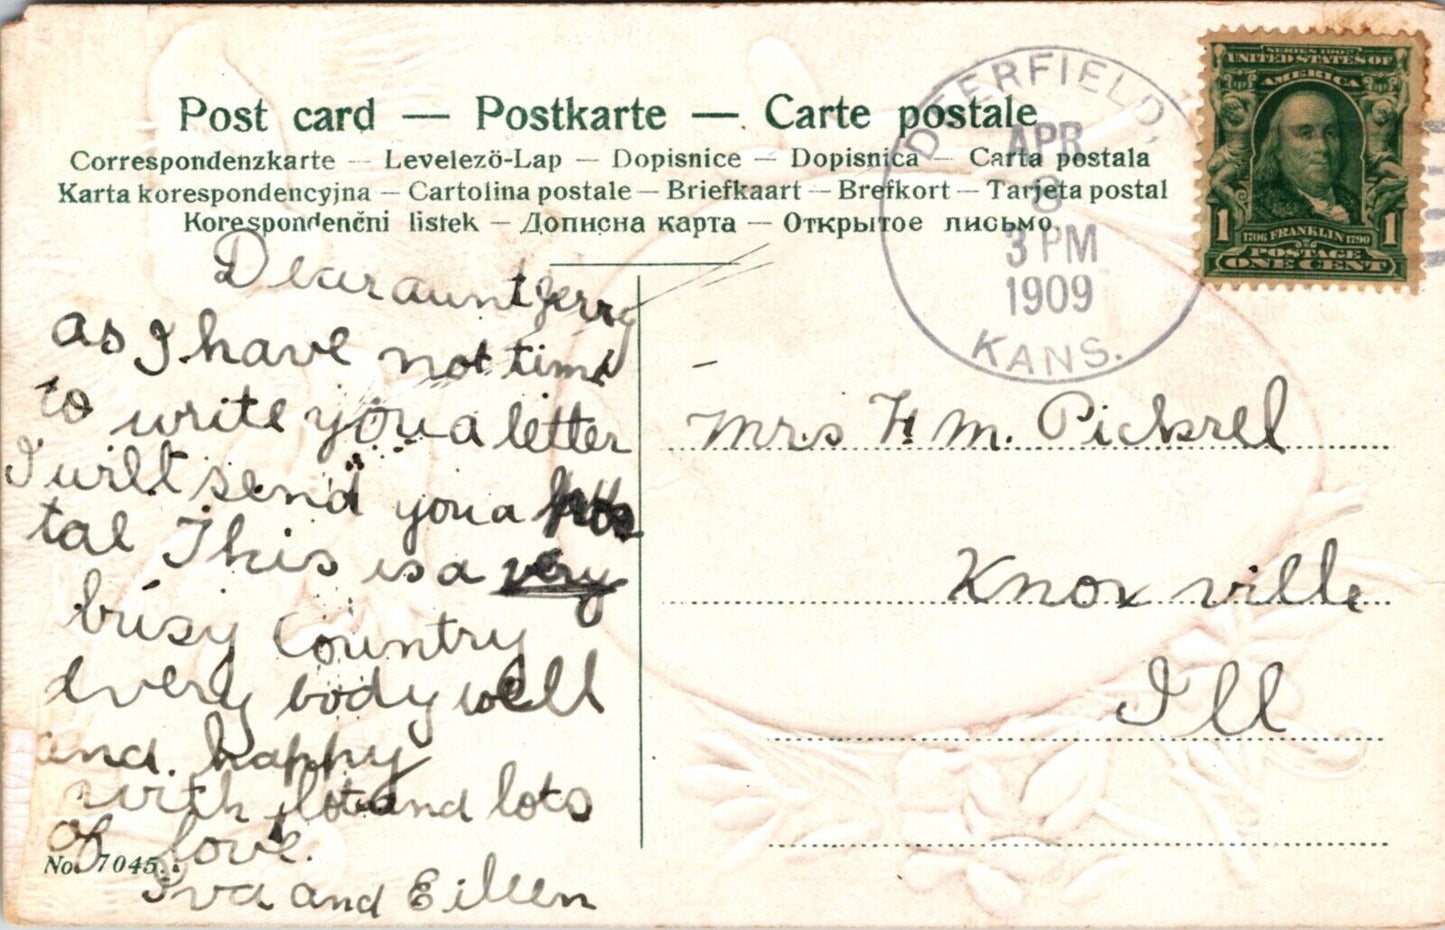 Post card — Postkarte — Carte postale
Correspondenzkarte — Levelező-Lap — Dopisnice — Dopisnica — Carta postala
Karta korespondencyjna — Cartolina postale — Briefkaart — Brefkort — Tarjeta postal
Korespondenčni listek — Дописна карта — Открытое письмо.
DEERFIELD,
APR
3 PM
1909
KANS.
SERIES 1902
UNITED STATES OF
AMERICA
1 1706 FRANKLIN 1790 1
POSTAGE
ONE CENT
Dear aunt
as I have not time
to write you a letter
I will send you a
tal This is a very
busy Country
every body well
and happy
with lots and lots
of love.
Iva and Eileen
No. 7045.
Mrs H. M. Pickrel
Knoxville
Ill